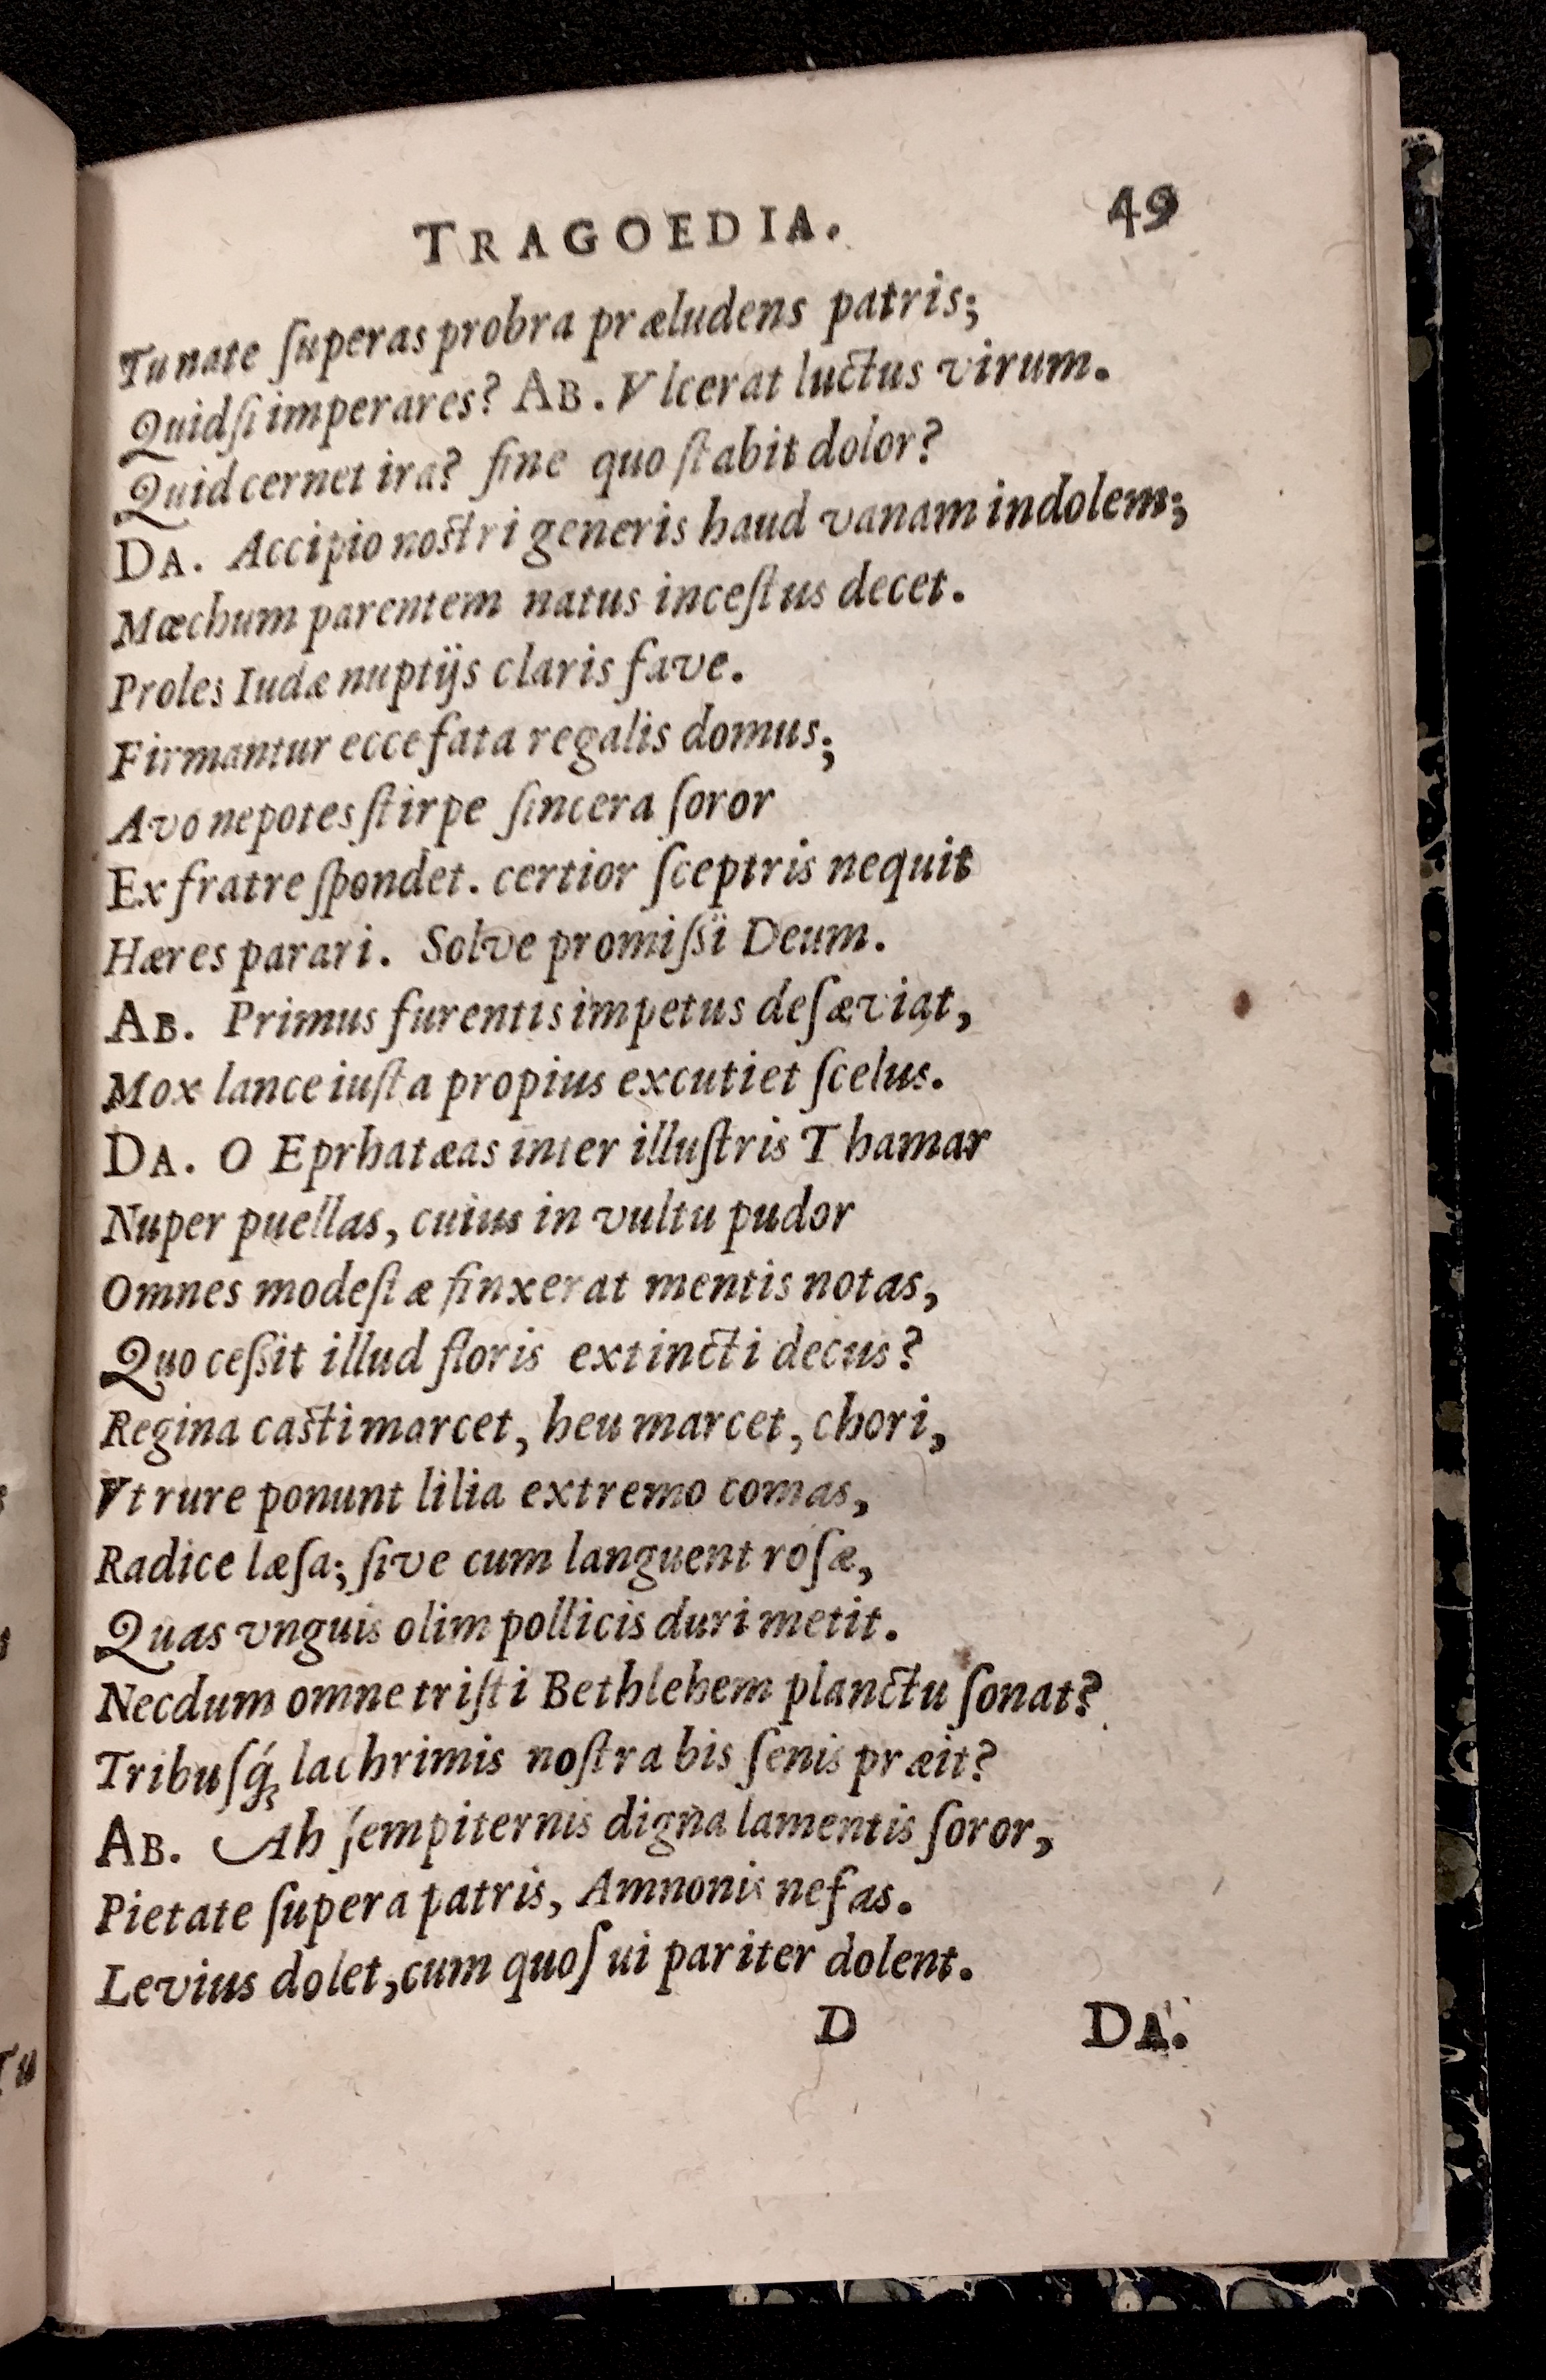 TRAGOEDIA. 49
Tu nate ſuperas probra præludens patris;
Quid ſi imperares? AB. Vlcerat luctus virum.
Quid cernet ira? fine quo ſtabit dolor?
DA. Accipio noſtri generis haud vanam indolem;
Mœchum parentem natus inceſtus decet.
Proles Iudæ nuptijs claris fave.
Firmantur ecce fata regalis domus;
Avo nepotes ſtirpe ſincera ſoror
Ex fratre ſpondet. certior ſceptris nequit
Hæres parari. Solve promiſſi Deum.
AB. Primus furentis impetus deſæviat,
Mox lance iuſta propius excutiet ſcelus.
DA. O Eprhatæas inter illuſtris Thamar
Nuper puellas, cuius in vultu pudor
Omnes modeſtæ finxerat mentis notas,
Quo ceſſit illud floris extincti decus?
Regina caſti marcet, heu marcet, chori,
Vt rure ponunt lilia extremo comas,
Radice læſa; ſive cum languent roſæ,
Quas vnguis olim pollicis duri metit.
Necdum omne triſti Bethlehem planctu ſonat?
Tribuſq́; lachrimis noſtra bis ſenis præit?
AB. Ah ſempiternis digna lamentis ſoror,
Pietate ſupera patris, Amnonis nefas.
Levius dolet, cum quo ſui pariter dolent.
D DA.
Tu